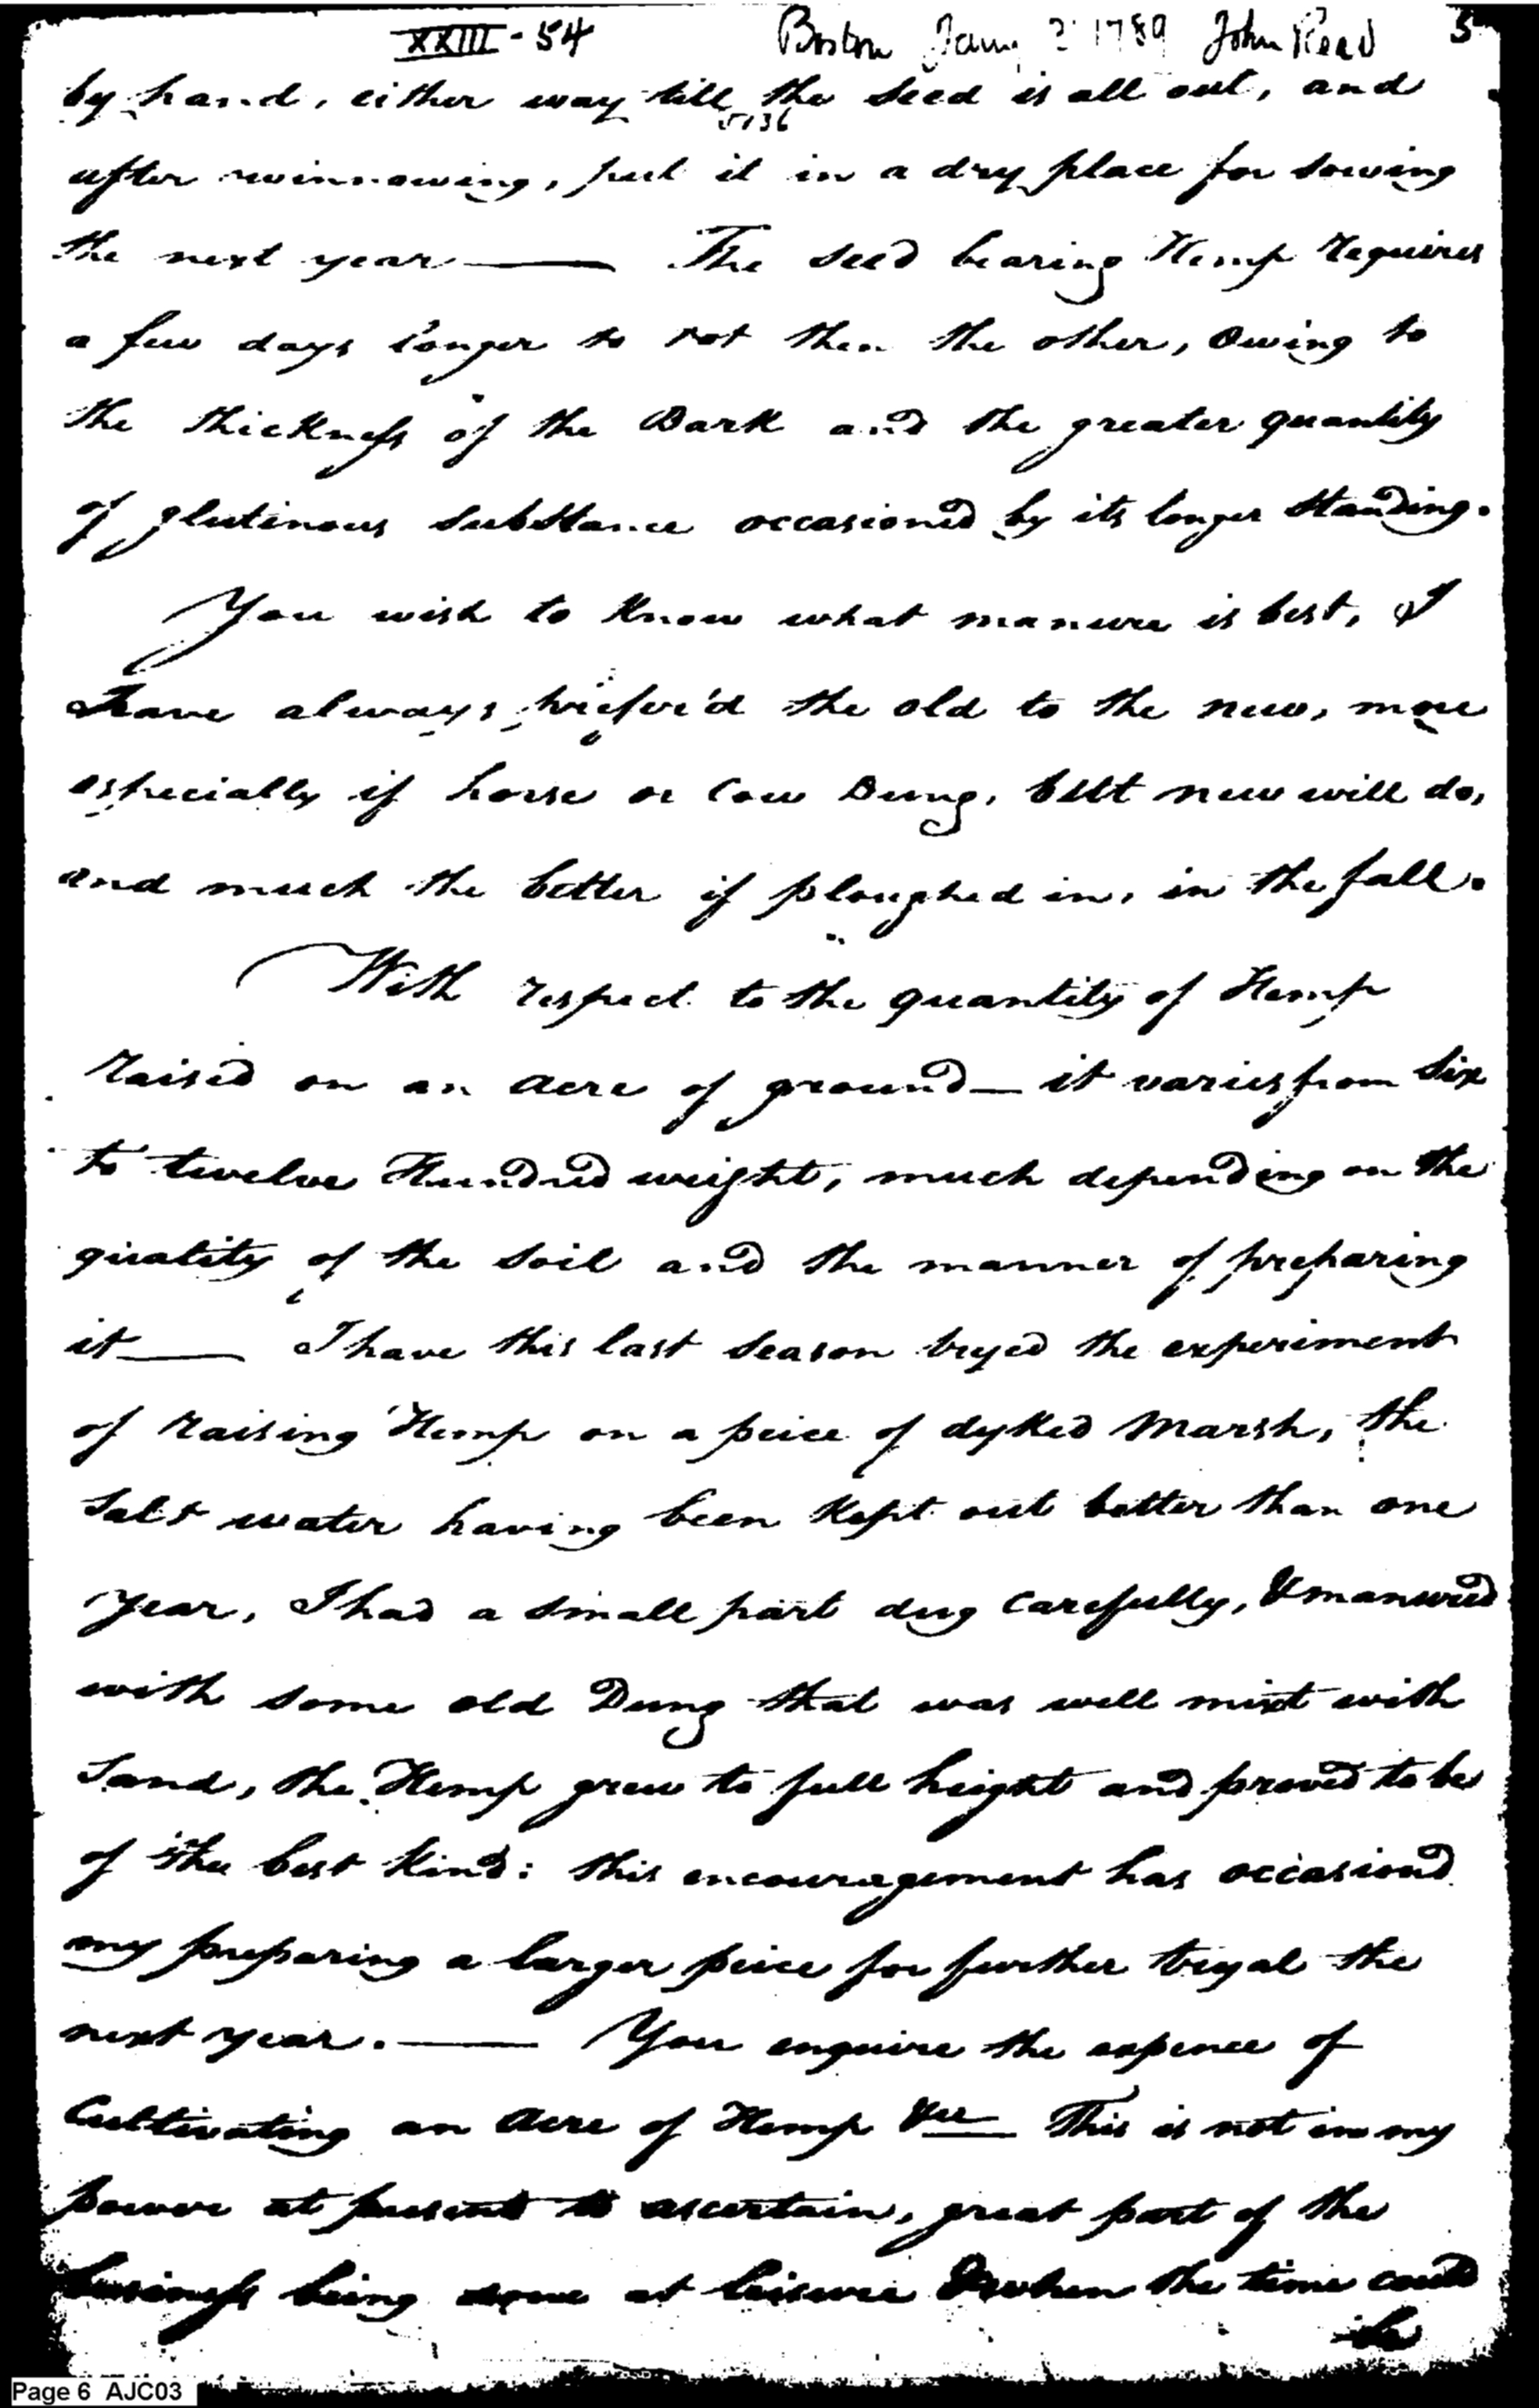 XXIII - 54 Boston Jany 2 1789 John Read 5
by hand, either way till the seed is all out, and
5136
after winnowing, put it in a dry place for sowing
the next year —— The seed bearing Hemp requires
a few days longer to rot then the other, owing to
the thickness of the Bark and the greater quantity
of glutinous substance occasioned by its longer standing.
You wish to know what manure is best, I
have always prefer'd the old to the new, more
especially if horse or Cow Dung, but new will do,
and much the better if ploughed in, in the fall.
With respect to the quantity of Hemp
raised on an acre of ground — it varies from Six
to twelve Hundred weight, much depending on the
quality of the soil and the manner of preparing
it —— I have this last season tryed the experiment
of raising Hemp on a peice of dyked Marsh, the
Salt water having been kept out better than one
year, I had a small part dug carefully, & manured
with some old Dung that was well mixt with
Sand, the Hemp grew to full height and proved to be
of the best kind: this encouragement has occasiond
my preparing a larger peice for further tryal the
next year. —— You enquire the expence of
Cultivating an Acre of Hemp &cc This is not in my
power at present to ascertain, great part of the
business being done at leisure & when the time could
be
Page 6 AJC03